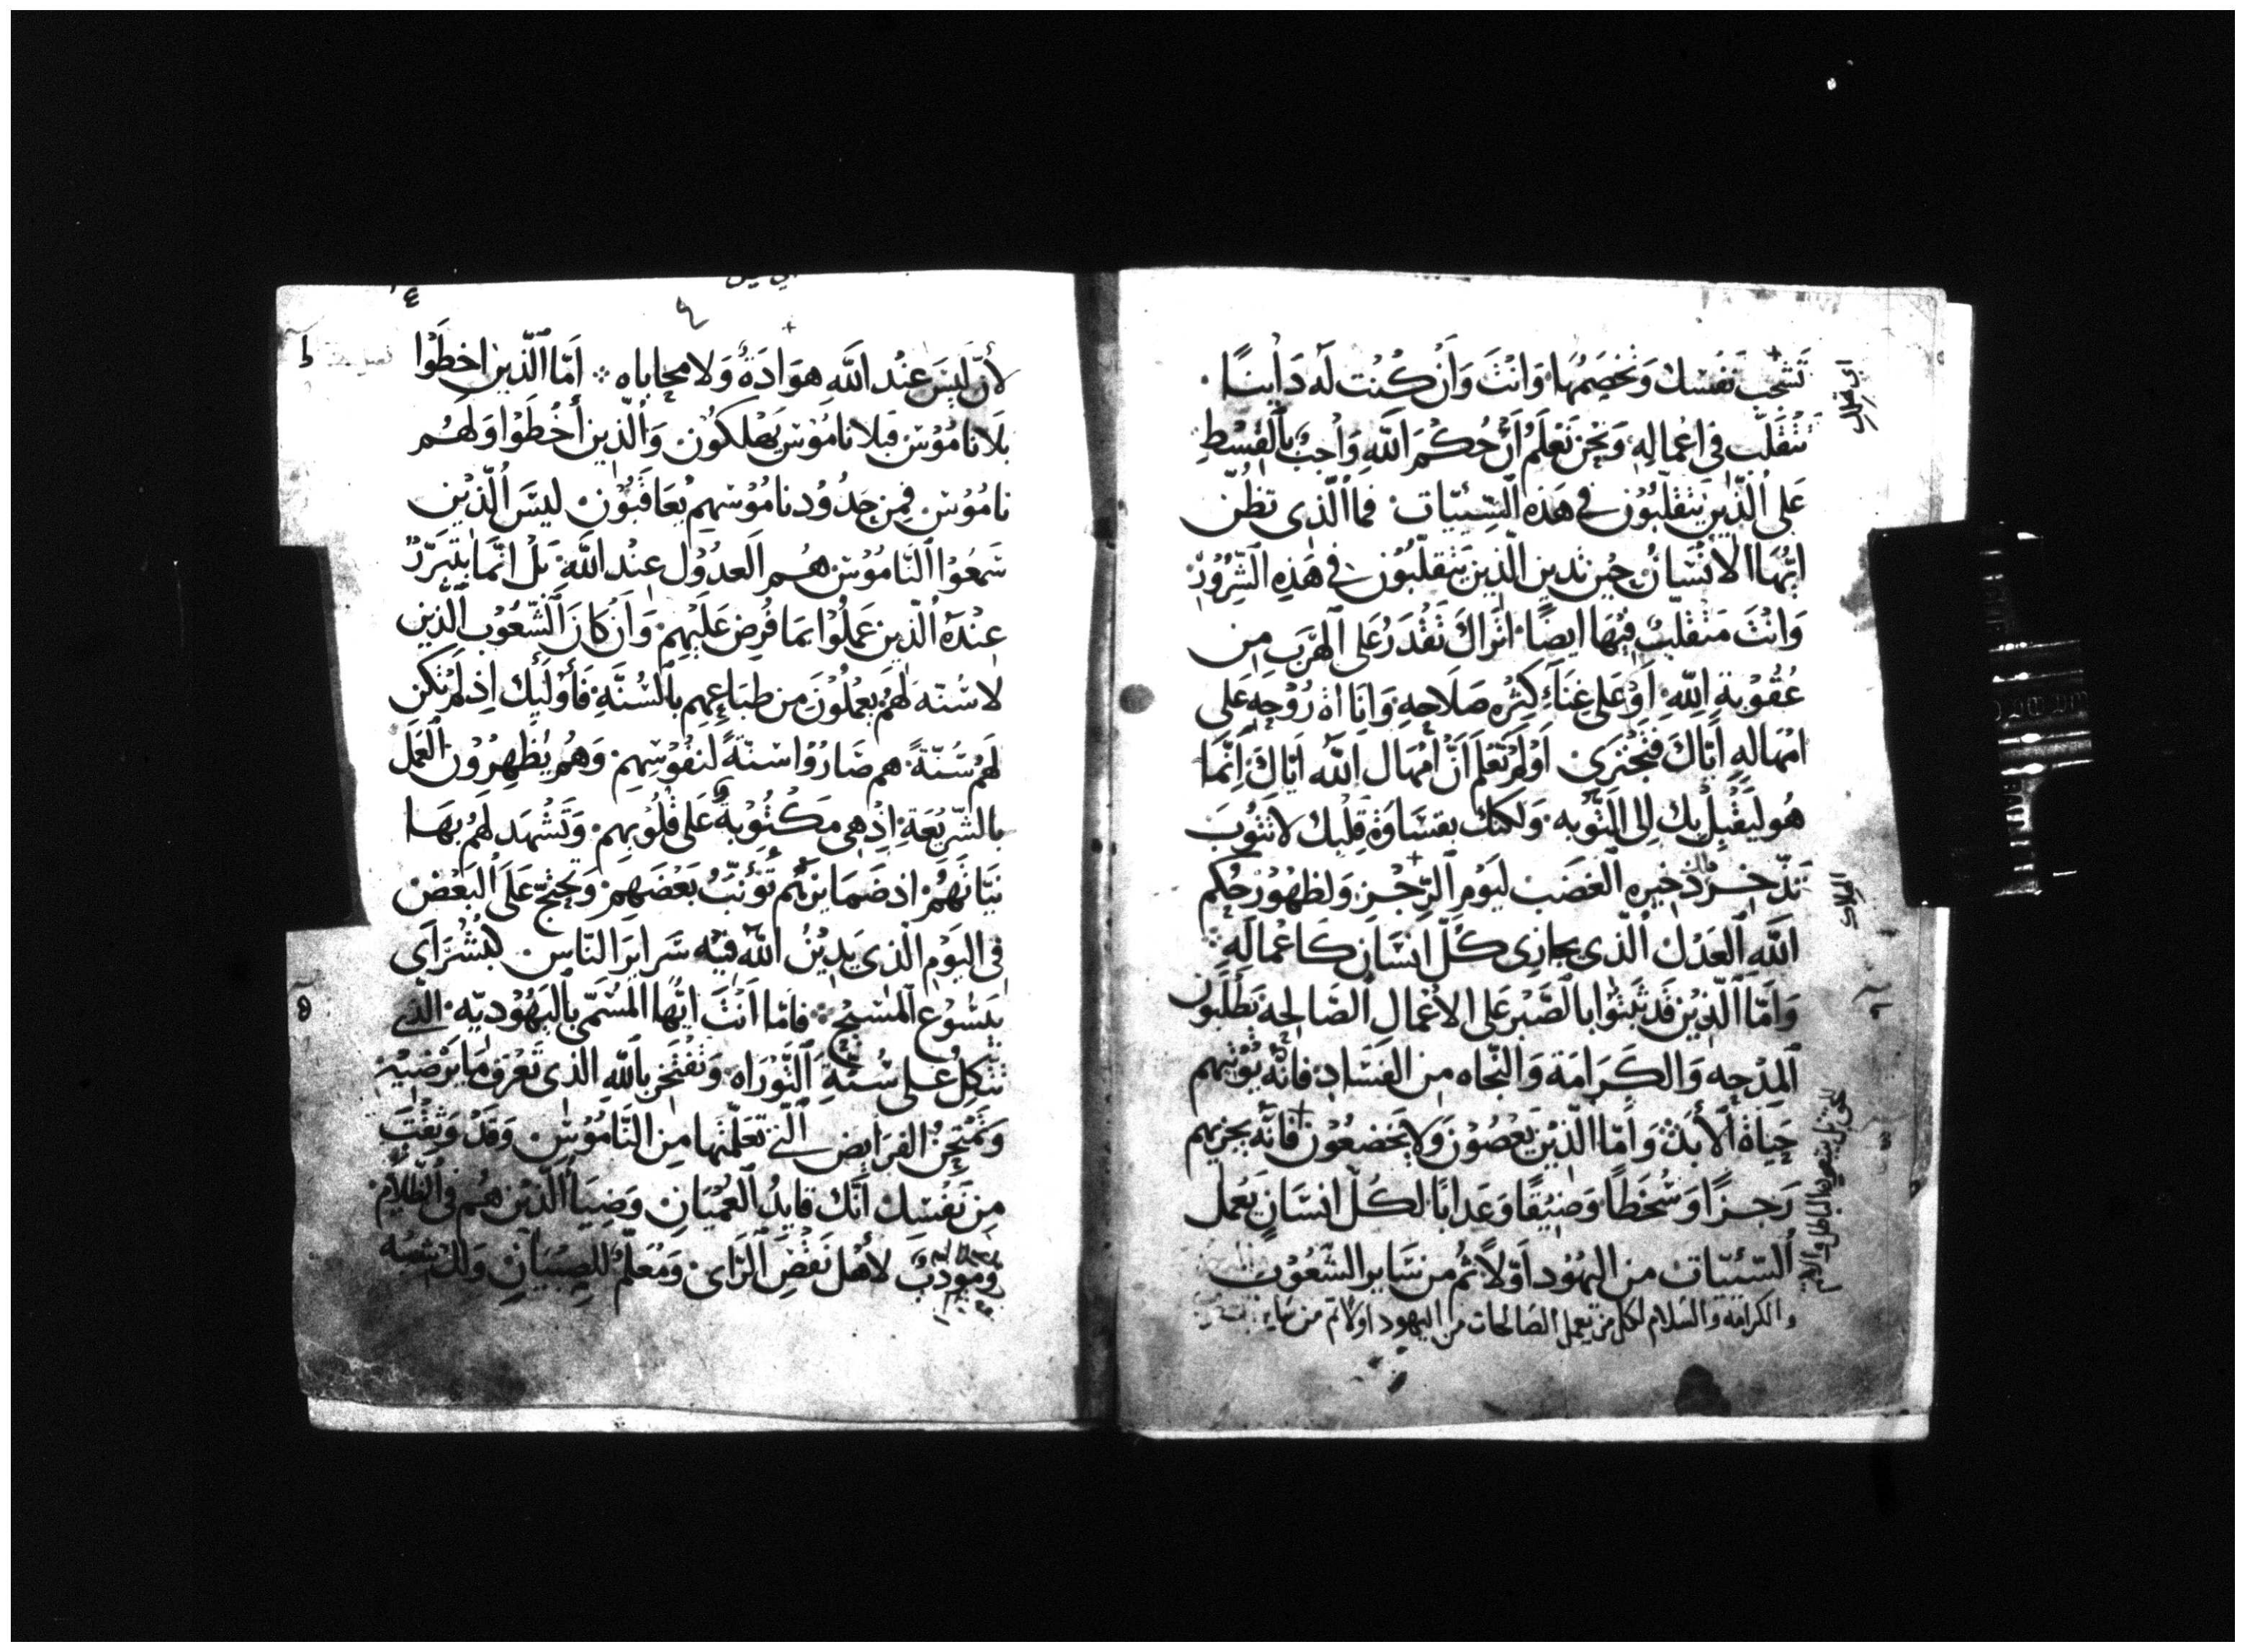 تَشجب نفسك وَتخصمُها وَانتَ وَان كنت لَه دَاينًا
تتقلّب في اعمالِهِ وَنحن نعلم ان حُكمَ اللّهِ وَاجبٌ بالقسطِ
عَلى الّذين يتقلّبون في هَذه السّيّيات فما الّذى تظن
ايّها الانسَانُ حين تدين الّذين يتقلّبون في هَذِهِ الشّرُور
وَانتَ متقلّبٌ فيها ايضًا اتراك تقدر عَلى الهَرَب من
عُقوبةِ اللّهِ اوعَلى غناءِ كثره صَلاحِهِ وَاناة رُوحهِ عَلى
امهالهِ ايّاكَ فتجترى اوَلم تعلم انّ امهَال اللّه ايّاكَ انّما
هُو ليقبل بك الى التّوبه ولكنك بقسَاوَة قلبك لا تتوب
تدّخر ذخيره الغضَب ليَوم الرّجز وَلظهُور حُكم
اللّه العَدل الّذى يجازى كُلّ انسَان كاعمالهِ
وَامّا الّذين قد ثبتوا بالصّبر عَلى الاعمال الصّالحة يَطلبون
المِدحه وَالكَرَامَة وَالنّجاه من الفسَاد فانّه يوتيهم
حَيَاة الأبد وَامّا الّذين يَعصُون وَلا يخضعُون فانّه يجزيهم
رَجزًا وَسُخطًا وَضيقًا وَعَذابًا لكلّ انسَانٍ يعمل
السّيّيات من اليهُود اوّلاً ثم من سَاير الشعُوب
والكرامه والسلام لكل من يعمل الصالحات من اليهود اولا ثم من ساير
لأن ليسَ عند اللّه هوَادَةٌ وَلا محاباه امّا الّذين اخطَوا
بلا نامُوس فبلا نامُوس يَهلكون وَالّذين أخطَوا وَلهُم
نامُوس فمن حدُود نامُوسهم يعَاقبُون ليسَ الّذين
سَمعُوا النّامُوس هُم العدُول عند اللّهِ بَل انّما يتبرّر
عندَهُ الّذين عَملُوا بما فرِض عَليهم وَان كانَ الشّعُوب الّذين
لا سُنّه لهُم يعملُونَ من طبَاعِهم بالسُّنَّةِ فأوليك اذ لم تكن
لهم سُنّةً هم صَارُوا سنّةً لنفوسِهم وَهُم يظهِرُون العَمل
بالشّريعَةِ اذ هي مَكتُوبةٌ عَلى قلوبهم وَتشهَد لهُم بهَا
نيّاتهُم اذ ضمايرهُم تُؤنّب بَعضهم وَتحتجّ عَلى البَعض
في اليَوم الّذى يَدينُ اللّه فيه سَرايرَ النّاس كبشرَاى
بيَسُوع المسيح فامّا انتَ ايّها المسَمّى باليهُوديّه الّذى
تتكل على سُنّةِ التّوراه وَتفتخر باللّهِ الذى تعرف ما يرضيه
وَتمتحن الفرَايض الّتى تعلّمتها من النّامُوس وَقد وَثقتَ
من نَفسِك انّك قايدُ العُميَانِ وَضيَا الّذين هُم في الظّلام
وَمُودّبٌ لأهل نقض الرَاى وَمُعَلّم للصِبيَانِ وَلك شبه